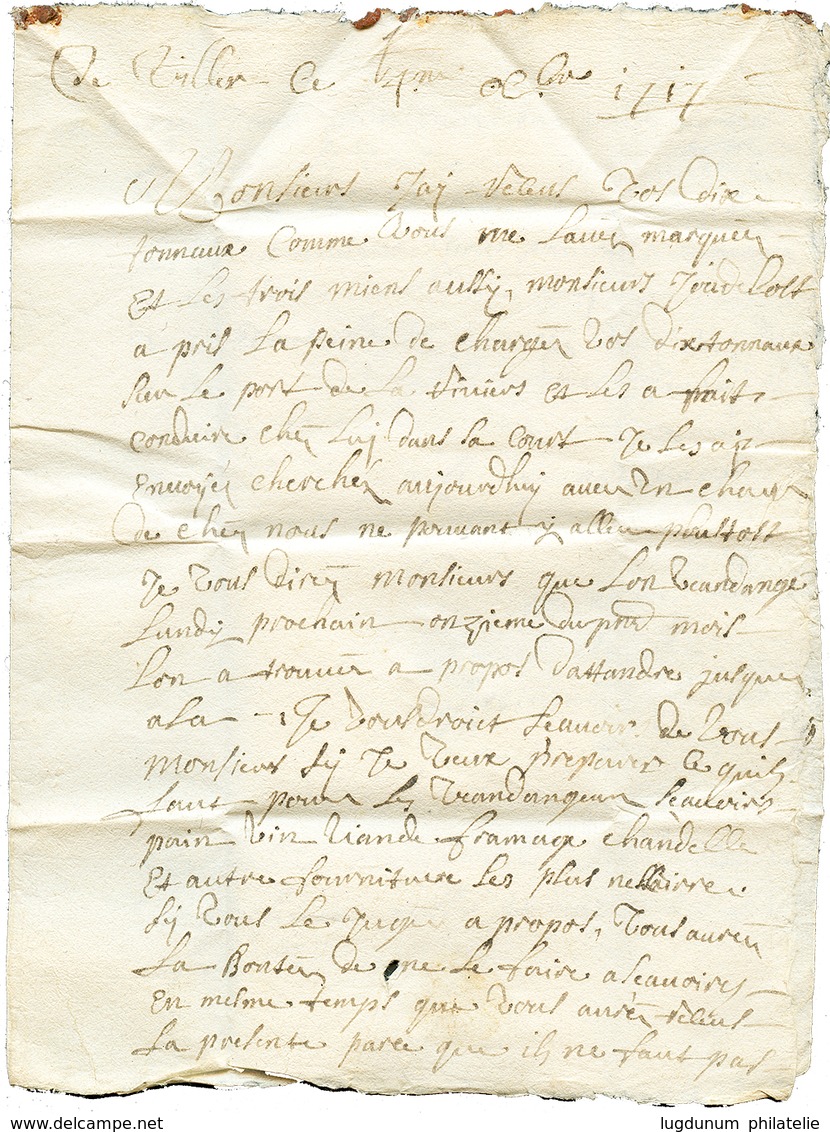 De Viller Ce 4me 8bre 1717
Monsieurs Jay Receus Vos dix
tonneaux Comme Vous me Lavez marquez
Et Les trois miens aussy, monsieurs
a pris La peine de charger Vos dix tonnaux
sur Le port de La Riviers et Les a fait
conduire chez Luy dans sa Court Je Les ay
Envoyez cherchez aujourdhuy avec Un
de chez nous ne pouvant y aller ploustost
Je Vous direz Monsieurs que Lon Vandange
Lundy prochain onzieme du pnt mois
Lon a trouvez a propos Dattandre jusques
a La Je Vousdroict Scavoirs de Vous
Monsieurs sy Je Veux preparer Ce quil
faut pour Les Vandangeurs Scavoirs
pain Vin Viande framage chandelle
Et autre fourniture Les plus nessairre
sy Vous Le Jugez a propos, Vous aurez
La Bontez de me Le faire a Scavoirs
En mesme temps que Vous aurez Receus
La presente parce que il ne faut pas
lugdunum philatelie